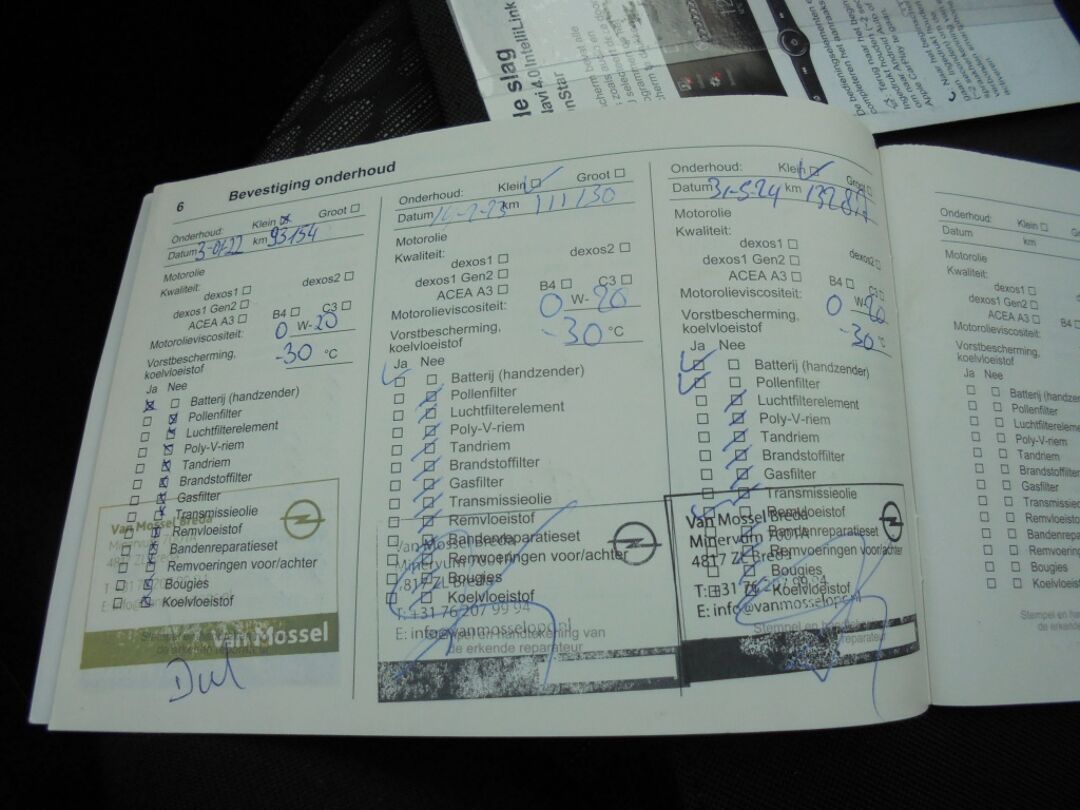 de slag
Navi 4.0 IntelliLink
OnStar
6 Bevestiging onderhoud
Onderhoud: Klein Groot
Datum 3-01-22 km 93154
Motorolie
Kwaliteit: dexos2
dexos1
dexos1 Gen2
ACEA A3 B4 C3
Motorolieviscositeit: 0 W-20
Vorstbescherming,
koelvloeistof -30 °C
Ja Nee
Batterij (handzender)
Pollenfilter
Luchtfilterelement
Poly-V-riem
Tandriem
Brandstoffilter
Gasfilter
Transmissieolie
Remvloeistof
Bandenreparatieset
Remvoeringen voor/achter
Bougies
Koelvloeistof
Van Mossel Breda
Van Mossel
Onderhoud: Klein Groot
Datum km 111130
Motorolie
Kwaliteit:
dexos1 dexos2
dexos1 Gen2
ACEA A3 B4 C3
Motorolieviscositeit: 0 W-20
Vorstbescherming,
koelvloeistof -30 °C
Ja Nee
Batterij (handzender)
Pollenfilter
Luchtfilterelement
Poly-V-riem
Tandriem
Brandstoffilter
Gasfilter
Transmissieolie
Remvloeistof
Bandenreparatieset
Remvoeringen voor/achter
Bougies
Koelvloeistof
Van Mossel Breda
Minervum 7001A
4817 ZL Breda
T: +31 76 207 99 94
E: info@vanmosselopel.nl
Stempel en handtekening van
de erkende reparateur
Onderhoud: Klein Groot
Datum 31-5-24 km
Motorolie
Kwaliteit:
dexos1 dexos2
dexos1 Gen2
ACEA A3 B4 C3
Motorolieviscositeit: 0 W-20
Vorstbescherming,
koelvloeistof -30 °C
Ja Nee
Batterij (handzender)
Pollenfilter
Luchtfilterelement
Poly-V-riem
Tandriem
Brandstoffilter
Gasfilter
Transmissieolie
Remvloeistof
Bandenreparatieset
Remvoeringen voor/achter
Bougies
Koelvloeistof
Van Mossel Breda
Minervum 7001A
4817 ZL Breda
T: +31 76 207 99 94
E: info@vanmosselopel.nl
Onderhoud: Klein
Datum km
Motorolie
Kwaliteit:
dexos1
dexos1 Gen2
ACEA A3
Motorolieviscositeit:
Vorstbescherming,
koelvloeistof
Ja Nee
Pollenfilter
Luchtfilterelement
Poly-V-riem
Tandriem
Brandstoffilter
Gasfilter
Transmissieolie
Remvloeistof
Bougies